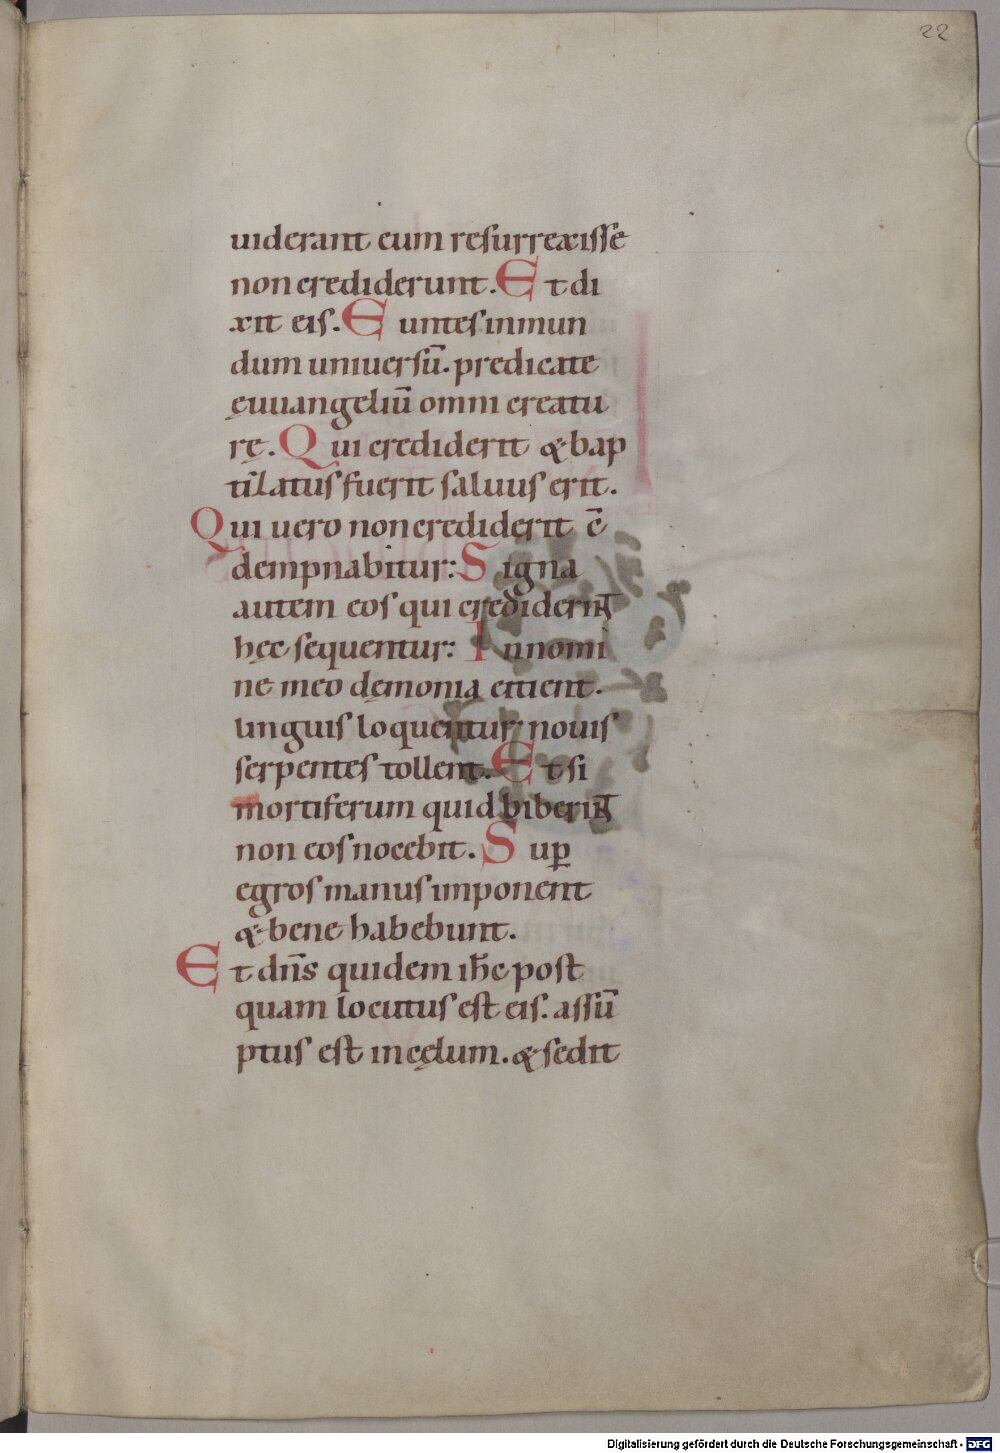 22
uiderant eum resurrexisse
non crediderunt. Et di
xit eis. Euntes in mun
dum uniuersū. predicate
ęuuangeliū omni creatu
rę. Qui crediderit & bap
tizatus fuerit saluus erit.
Qui uero non crediderit c̄
dempnabitur: Signa
autem eos qui crediderint
hęc sequentur: In nomi
ne meo dęmonia eicient.
linguis loquentur nouis
serpentes tollent. Et si
mortiferum quid biberint
non eos nocebit. Suꝑ
egros manus imponent
& bene habebunt.
Et dn̄s quidem ih̄c post
quam locutus est eis. assū
ptus est in cęlum. & sedit
Digitalisierung gefördert durch die Deutsche Forschungsgemeinschaft - DFG